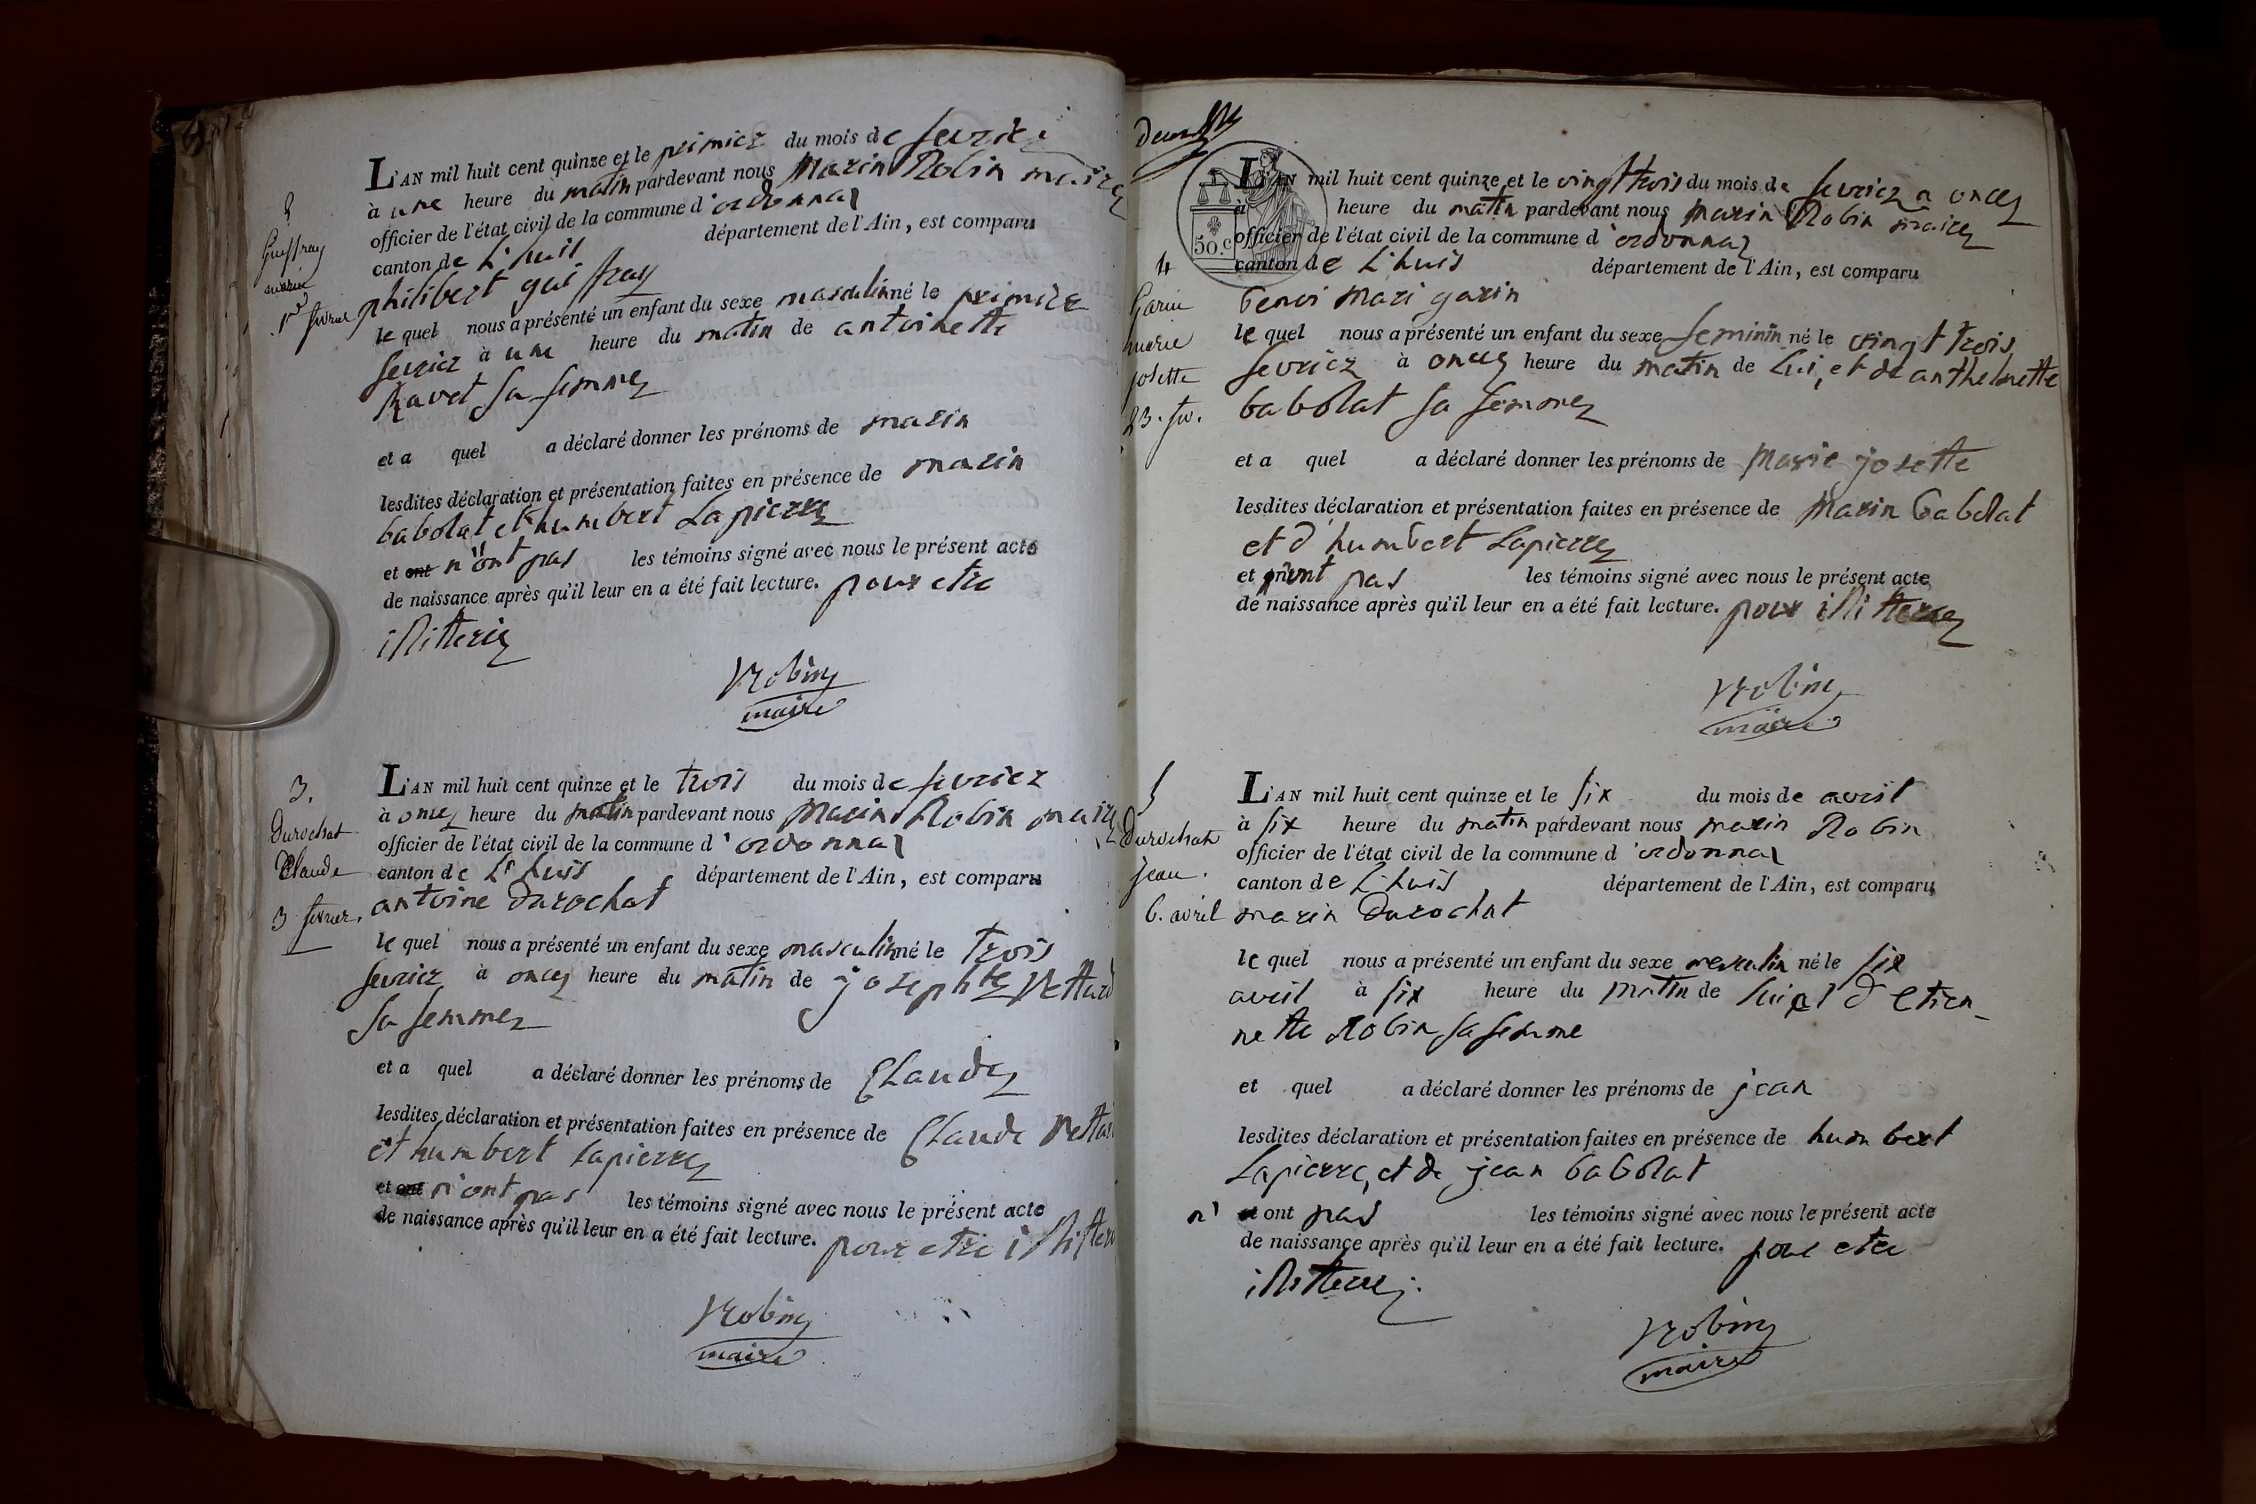 2
Gueffray
marin
1er février
L'AN mil huit cent quinze et le premier du mois de fevrier
à une heure du matin pardevant nous Marin Robin maire
officier de l'état civil de la commune d'ordonnas
canton de L'huis département de l'Ain, est comparu
philibert guiffray
le quel nous a présenté un enfant du sexe masculin né le premier
fevrier à une heure du matin de antoinette
Ravet sa femme
et a quel a déclaré donner les prénoms de marin
lesdites déclaration et présentation faites en présence de marin
babolat et humbert Lapierre
et ont n'ont pas les témoins signé avec nous le présent acte
de naissance après qu'il leur en a été fait lecture. pour etre
illitteré
Robin
maire
3.
Durochat
Claude
3 février.
L'AN mil huit cent quinze et le trois du mois de fevrier
à onze heure du matin pardevant nous Marin Robin maire
officier de l'état civil de la commune d'ordonnas
canton de L'huis département de l'Ain, est comparu
antoine durochat
le quel nous a présenté un enfant du sexe masculin né le trois
fevrier à onze heure du matin de josephte Vettard
sa femme
et a quel a déclaré donner les prénoms de Claude
lesdites déclaration et présentation faites en présence de Claude
et humbert Lapierre
et ont n'ont pas les témoins signé avec nous le présent acte
de naissance après qu'il leur en a été fait lecture. pour etre
Robin
maire
50.c
4
Garin
marie
josette
23. fev.
L'AN mil huit cent quinze et le vingt trois du mois de fevrier a onze
à heure du matin pardevant nous marin Robin maire
officier de l'état civil de la commune d'ordonnas
canton de L'huis département de l'Ain, est comparu
benoi mari garin
le quel nous a présenté un enfant du sexe feminin né le vingt trois
fevrier à onze heure du matin de lui, et de anthelmette
babolat sa femme
et a quel a déclaré donner les prénoms de Marie josette
lesdites déclaration et présentation faites en présence de Marin babolat
et d'humbert Lapierre
et n'ont pas les témoins signé avec nous le présent acte
de naissance après qu'il leur en a été fait lecture. pour illitteré
Robin
maire
5
Durochat
jean.
6. avril
L'AN mil huit cent quinze et le six du mois de avril
à six heure du matin pardevant nous marin Robin
officier de l'état civil de la commune d'ordonnas
canton de L'huis département de l'Ain, est comparu
marin durochat
le quel nous a présenté un enfant du sexe mesculin né le six
avril à six heure du matin de lui et d'etien-
nette Robin sa femme
et quel a déclaré donner les prénoms de jean
lesdites déclaration et présentation faites en présence de humbert
Lapierre, et de jean babolat
n' et ont pas les témoins signé avec nous le présent acte
de naissance après qu'il leur en a été fait lecture. pour etre
illitteré.
Robin
maire